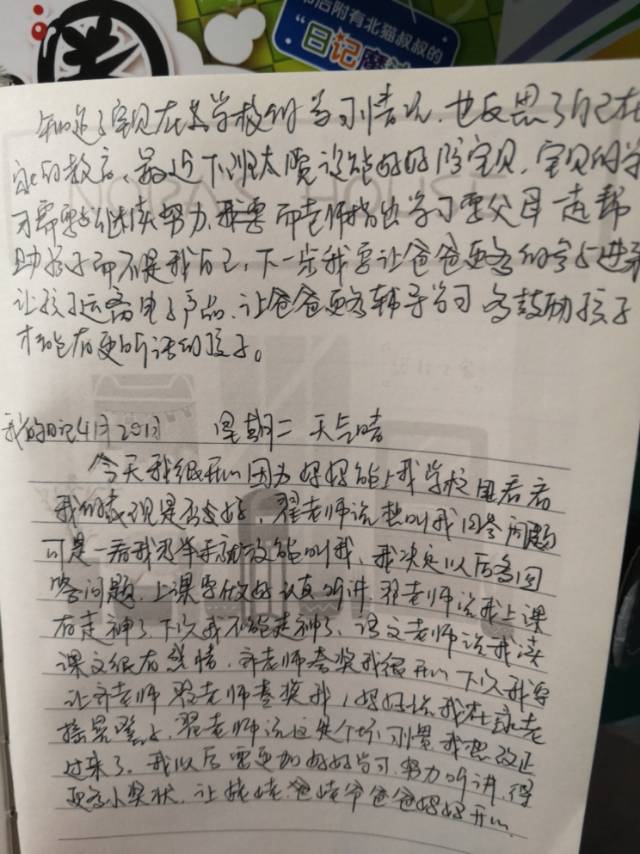 后附有北猫叔叔的
"日记魔法
知道了宝贝在其学校的学习情况,也反思了自己在
家的教育,最近下班太晚没能好好陪宝贝,宝贝的学
习需要继续努力,而老师指出学习要父母一起帮
助孩子而不是我自己,下一步我要让爸爸更多的参与进来
让孩子远离电子产品,让爸爸更多辅导学习 多鼓励孩子
才能有更听话的孩子。
我的日记4月29日 星期二 天气晴
今天我很开心因为妈妈能上我学校里看看
我的表现是否变好,翟老师说想叫我回答问题
可是一看我没举手就没能叫我,我决定以后多回
答问题,上课要做好认真听讲,翟老师说我上课
有走神了,下次我不能走神了,语文老师说我读
课文很有感情,齐老师夸奖我很开心 下次我要
让齐老师 翟老师夸奖我,妈妈说我在家老
摇晃凳子,翟老师说这是个坏习惯我想改正
过来了,我以后需更加好好学习,努力听讲,得
更多小奖状,让姥姥爸爸妈妈开心